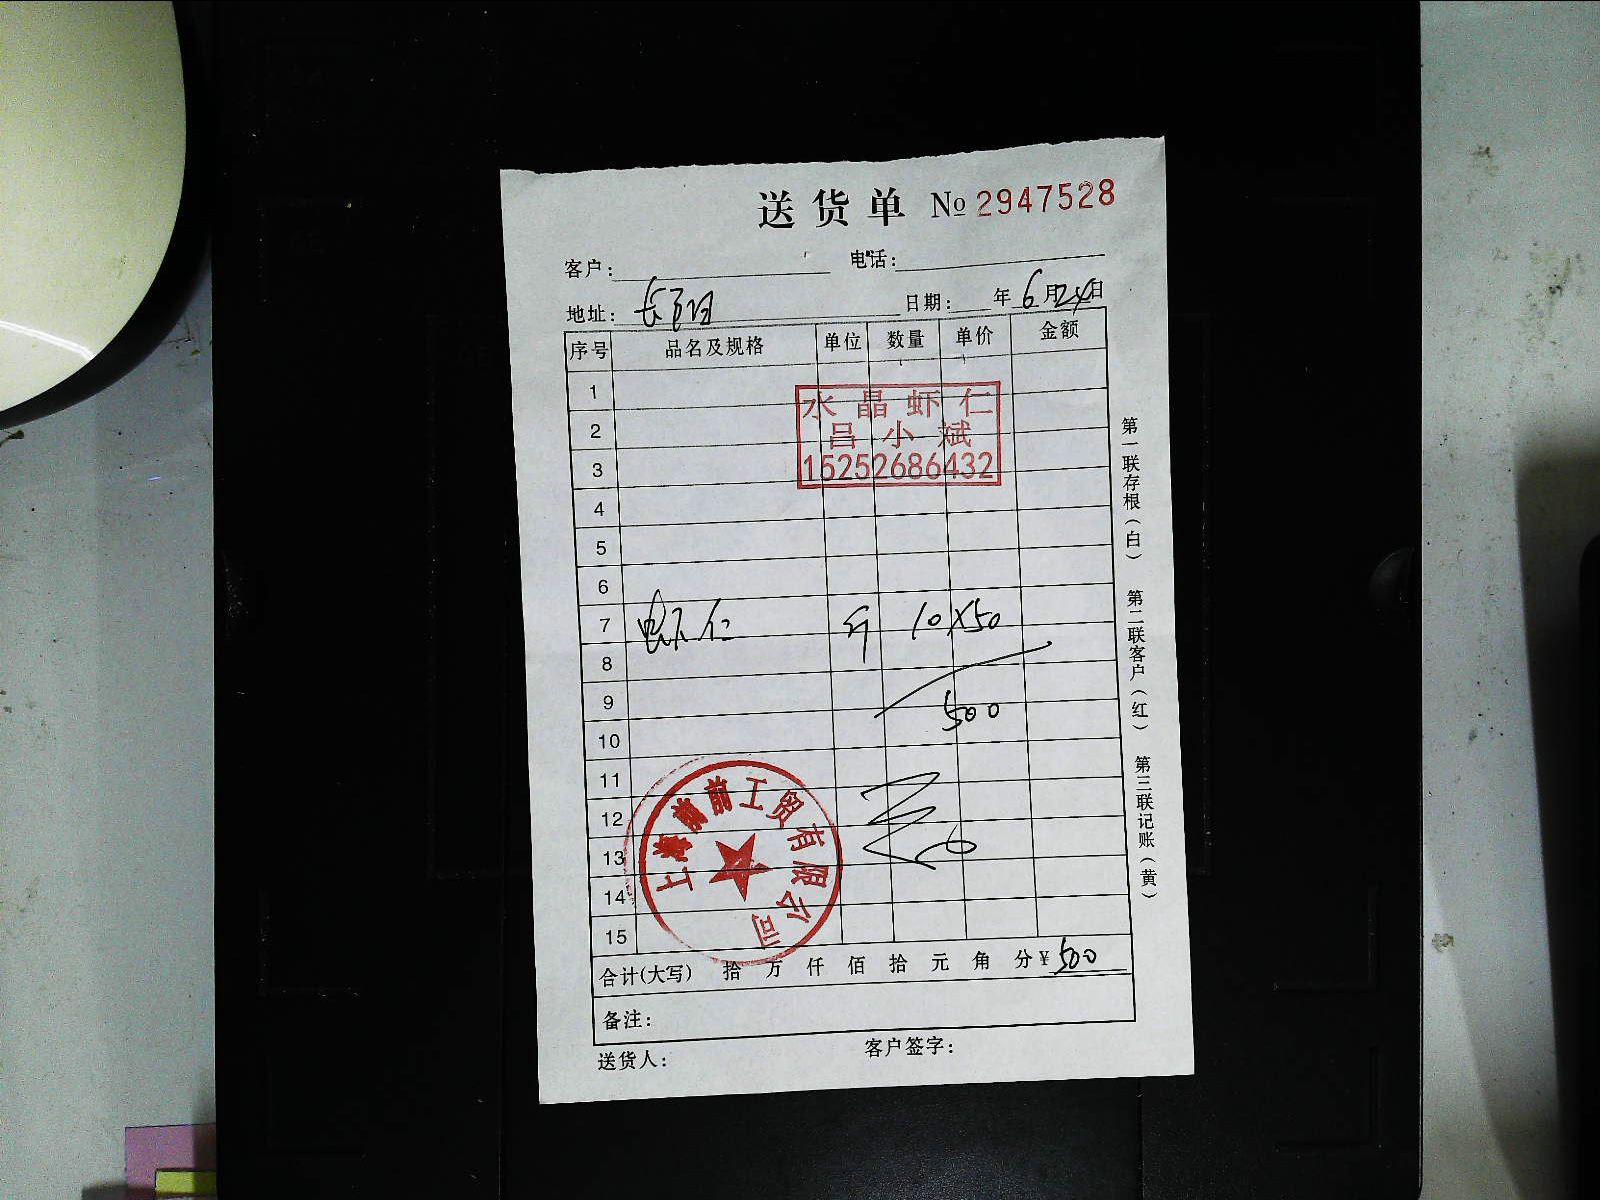 送货单 № 2947528
客户： 电话：
地址： 日期： 年 6 月 24 日
序号 品名及规格 单位 数量 单价 金额
1
水晶虾仁
2
吕小斌
3
15252686432
4
5
6
7 虾仁 斤 10×50
8
9
500
10
11
12
13
14
15
上海前前工贸有限公司
合计(大写) 拾 万 仟 佰 拾 元 角 分 ¥ 500
备注：
送货人： 客户签字：
第一联存根（白）
第二联客户（红）
第三联记账（黄）